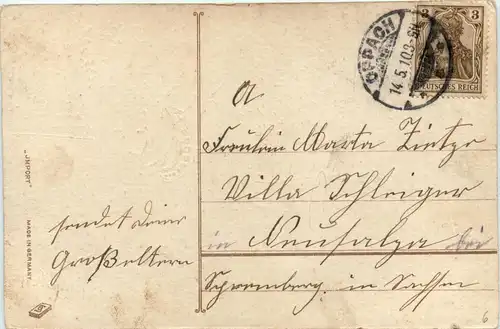 OPPACH
14.5.10.3-8N.
3 3
DEUTSCHES REICH
A
Fräulein Marta Zietze
Villa Schleiger
in Neusalza bei
Spremberg in Sachsen
sendet deine
Großeltern
„IMPORT"
MADE IN GERMANY
6